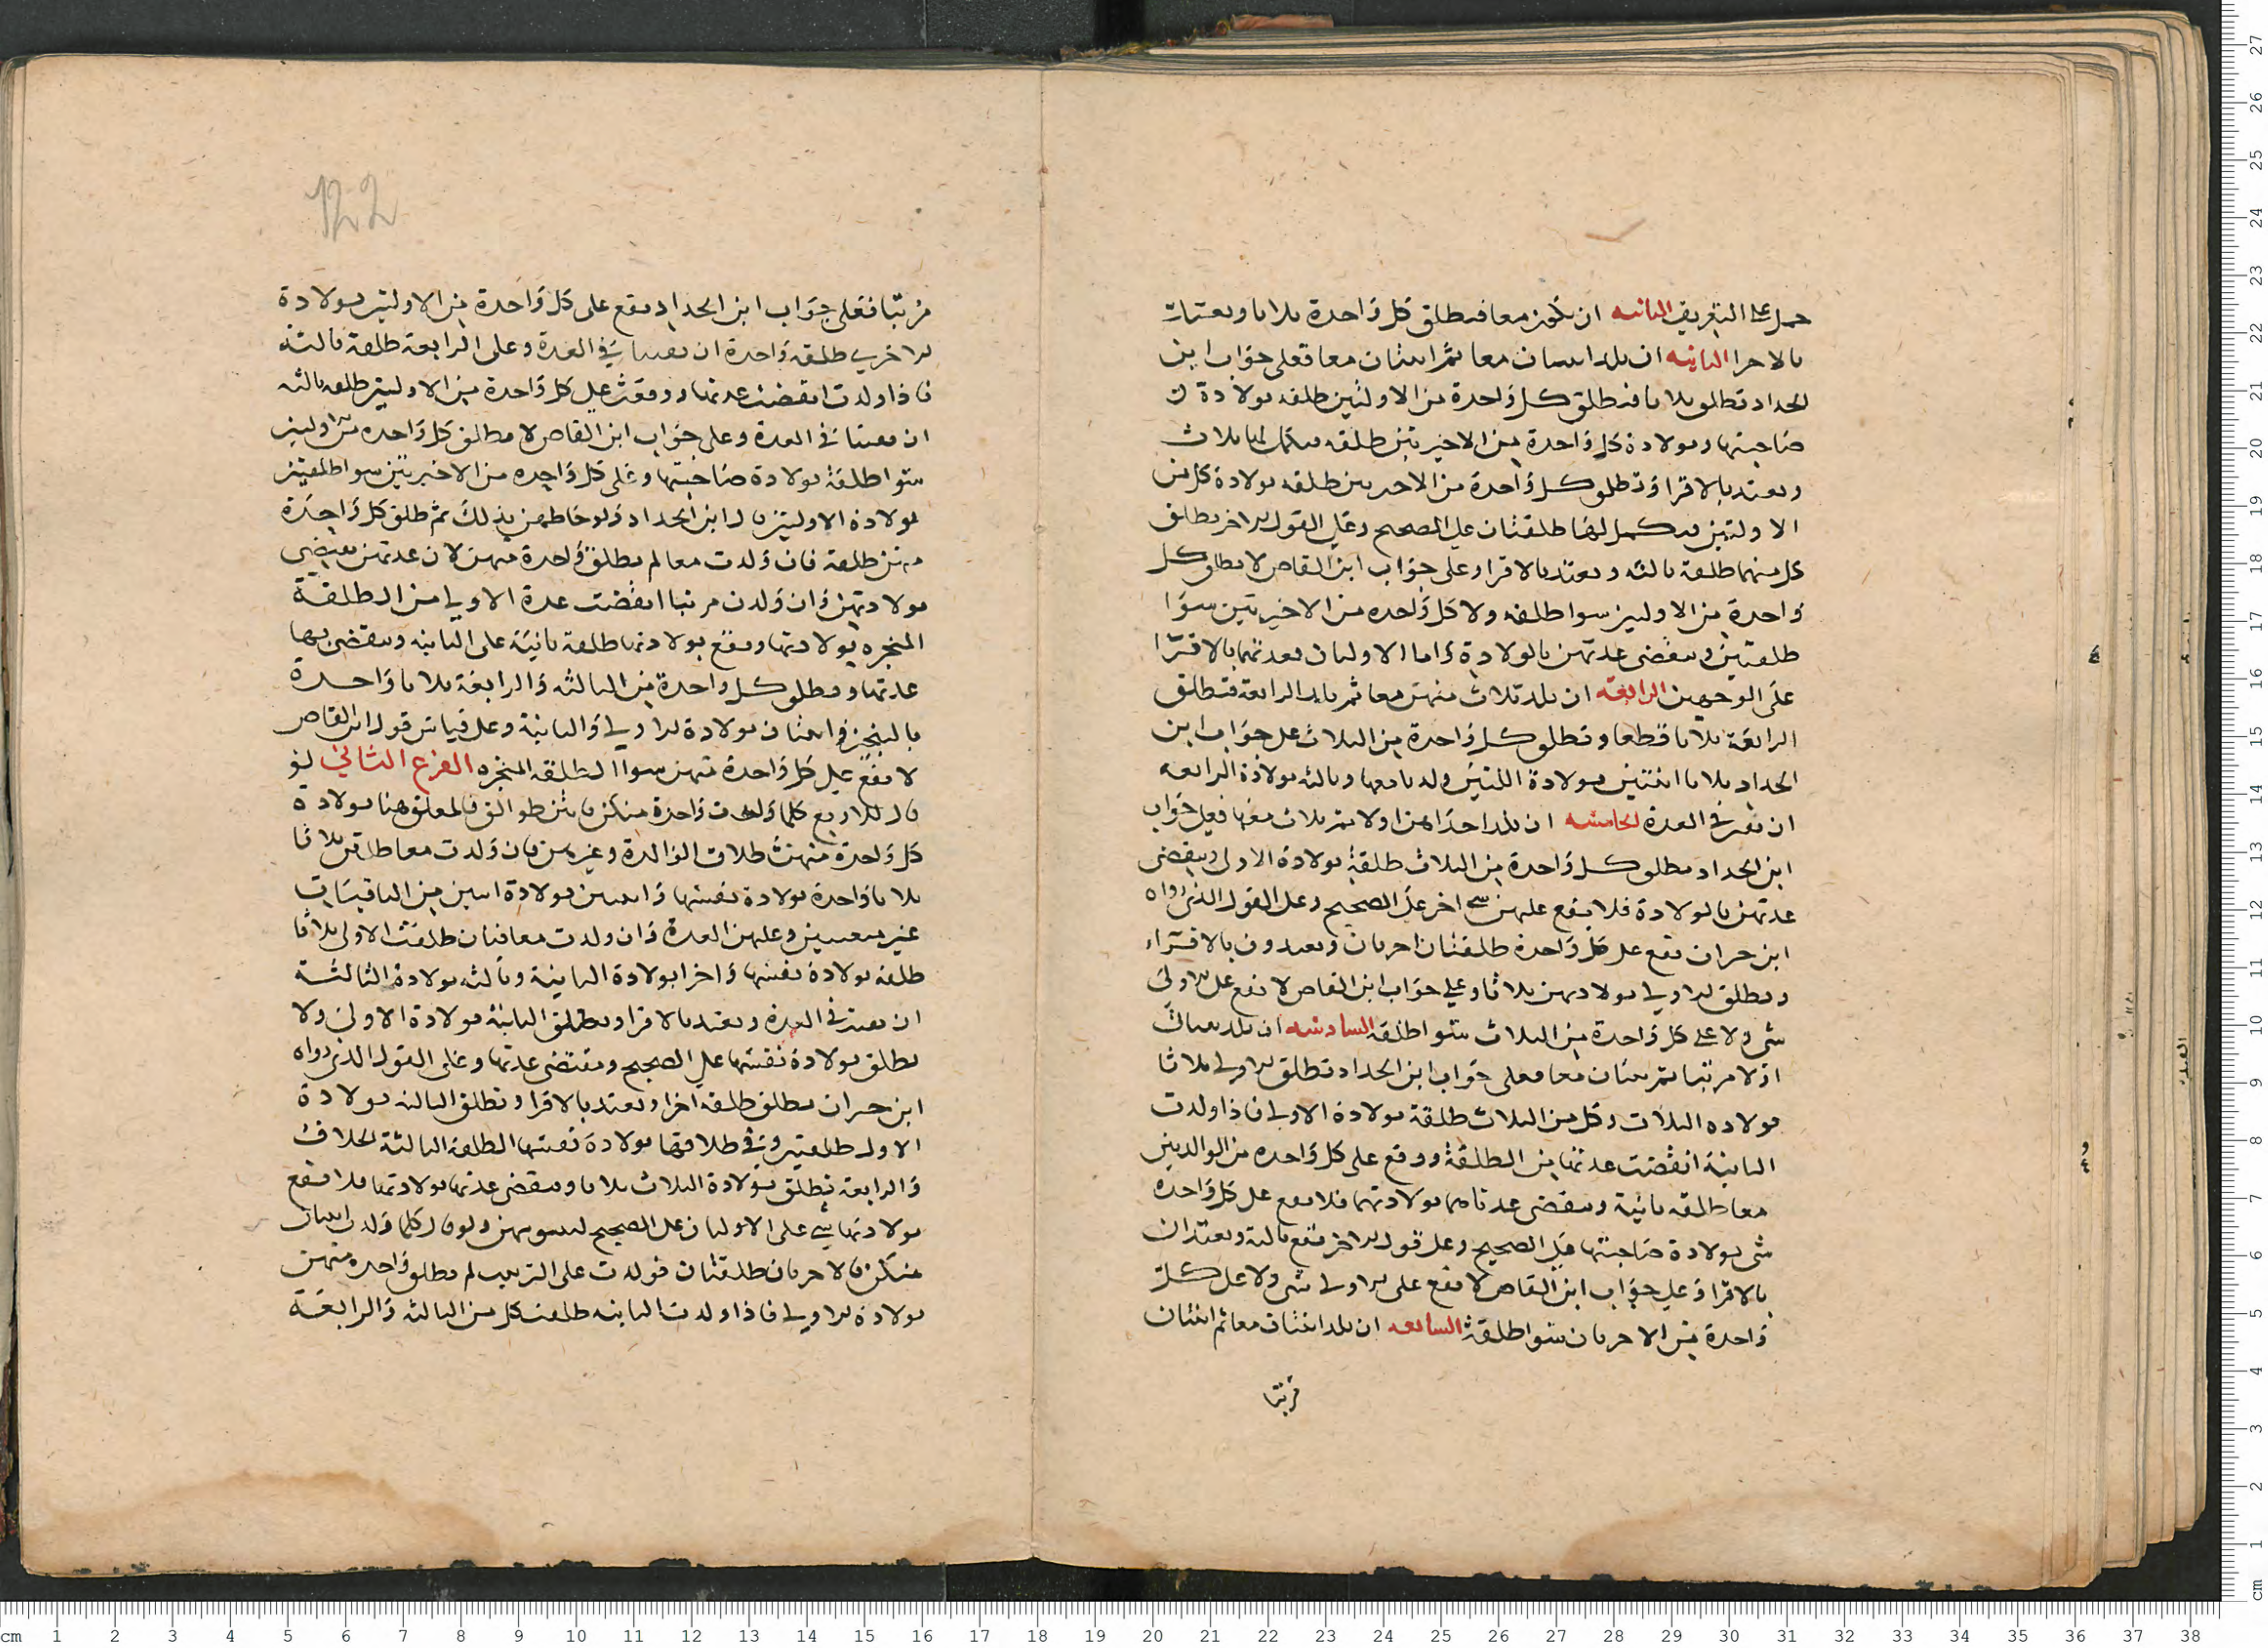 حمل على التفريق الثانيه ان يكون معا فتطلق كل واحدة ثلاثا ويعتدان
بالاقرا الثانيه ان يلد اثنتان معا ثم اثنتان معا فعلى جواب ابن
الحداد تطلق ثلاثا فتطلق كل واحدة من الاولتين طلقه بولادة
صاحبتها وبولادة كل واحدة من الاخيرتين طلقه فيكمل لها ثلاث
ويعتد بالاقرا وتطلق كل واحدة من الاخريين طلقه بولادة كل من
الاولتين فيكمل لها طلقتان على الصحيح وعلى القول الاخر يطلق
كل منهما طلقة ثالثه ويعتد بالاقرا وعلى جواب ابن القاص لا يطلق كل
واحدة من الاوليين سوا طلقه ولا كل واحده من الاخيرتين سوا
طلقتين وينقضي عدتهن بالولادة واما الاوليان فعدتهما بالاقرا
على الوجهين الرابعة ان يلد ثلاث منهن معا ثم يلد الرابعة فتطلق
الرابعة ثلاثا قطعا وتطلق كل واحدة من الثلاث على جواب ابن
الحداد ثلاثا اثنتين بولادة اللتين ولدتا معها وثالثه بولادة الرابعه
ان بقين في العدة الخامسه ان يلد احداهن اولا ثم ثلاث معا فعلى جواب
ابن الحداد يطلق كل واحدة من الثلاث طلقة بولادة الاولى وينقضي
عدتهن بالولادة فلا يقع عليهن شي اخر على الصحيح وعلى القول الذي رواه
ابن خيران يقع على كل واحدة طلقتان اخريان ويعتدون بالاقراء
ويطلق الاولى بولادتهن ثلاثا وعلى جواب ابن القاص لا يقع على الاولى
شي ولا على كل واحدة من الثلاث سوا طلقة السادسه ان يلد ثنتان
اولا مرتبا ثم ثنتان معا فعلى جواب ابن الحداد تطلق الاولى ثلاثا
بولاده الثلاث وكل من الثلاث طلقة بولادة الاولى فاذا ولدت
الثانية انقضت عدتها من الطلقة ووقع على كل واحده من الوالدتين
معا طلقه ثانية وينقضي عدتاهما بولادتهما فلا يقع على كل واحدة
شي بولادة صاحبتها على الصحيح وعلى قول الاخر يقع ثالثة ويعتدان
بالاقرا وعلى جواب ابن القاص لا يقع على الاولى شي ولا على كل
واحدة من الاخريان سوا طلقة السابعه ان يلد اثنتان معا ثم اثنتان
مرتبا
مرتبا فعلى جواب ابن الحداد يقع على كل واحدة من الاولتين بولادة
الاخرى طلقة واحدة ان بقيتا في العدة وعلى الرابعة طلقة ثالثة
فاذا ولدت انقضت عدتها ووقعت على كل واحدة من الاوليين طلقه ثالثه
ان بقيتا في العدة وعلى جواب ابن القاص لا يطلق كل واحده من الاوليين
سوا طلقة بولادة صاحبتها وعلى كل واحده من الاخيرتين سوا طلقتين
بولادة الاوليتين قال ابن الحداد ولو خاطبهن بذلك ثم طلق كل واحدة
منهن طلقة فان ولدت معا لم يطلق واحدة منهن لان عدتهن تنقضي
بولادتهن وان ولدن مرتبا انقضت عدة الاولى من الطلقة
المنجزه بولادتها ويقع بولادتها طلقة ثانية على الثانيه وينقضي بها
عدتها ويطلق كل واحدة من الثالثه والرابعة ثلاثا واحدة
بالتنجيز واثنتان بولادة الاولى والثانية وعلى قياس قول ابن القاص
لا يقع على كل واحدة منهن سوا الطلقه المنجزه الفرع الثاني لو
قال للاربع كلما ولدت واحدة منكن فانتن طوالق فالمعلق هنا بولادة
كل واحدة منهن طلاق الوالدة وغيرهن فان ولدت معا طلقن ثلاثا
ثلاثا واحدة بولادة نفسها واثنتين بولادة اثنين من الباقيات
غير معينين وعليهن العدة وان ولدت معاقبتان طلقت الاولى ثلاثا
طلقه بولادة نفسها واخرا بولادة الثانية وثالثه بولادة الثالثة
ان بقيت في العدة ويعتد بالاقرا ويطلق الثانية بولادة الاولى ولا
يطلق بولادة نفسها على الصحيح وينقضي عدتها وعلى القول الذي رواه
ابن خيران يطلق طلقه اخرا ويعتد بالاقرا وتطلق الثالثه بولادة
الاول طلقتين وفي طلاقها بولادة نفسها الطلقة الثالثة الخلاف
والرابعة تطلق بولادة الثلاث ثلاثا وينقضي عدتها بولادتها فلا يقع
بولادتها شي على الاوليان على الصحيح ولو قال كلما ولدت اثنتان
منكن فالاخريان طلقتان فولدت على الترتيب لم يطلق واحده منهن
بولادة الاولى فاذا ولدت الثانيه طلقت كل من الثالثه والرابعة